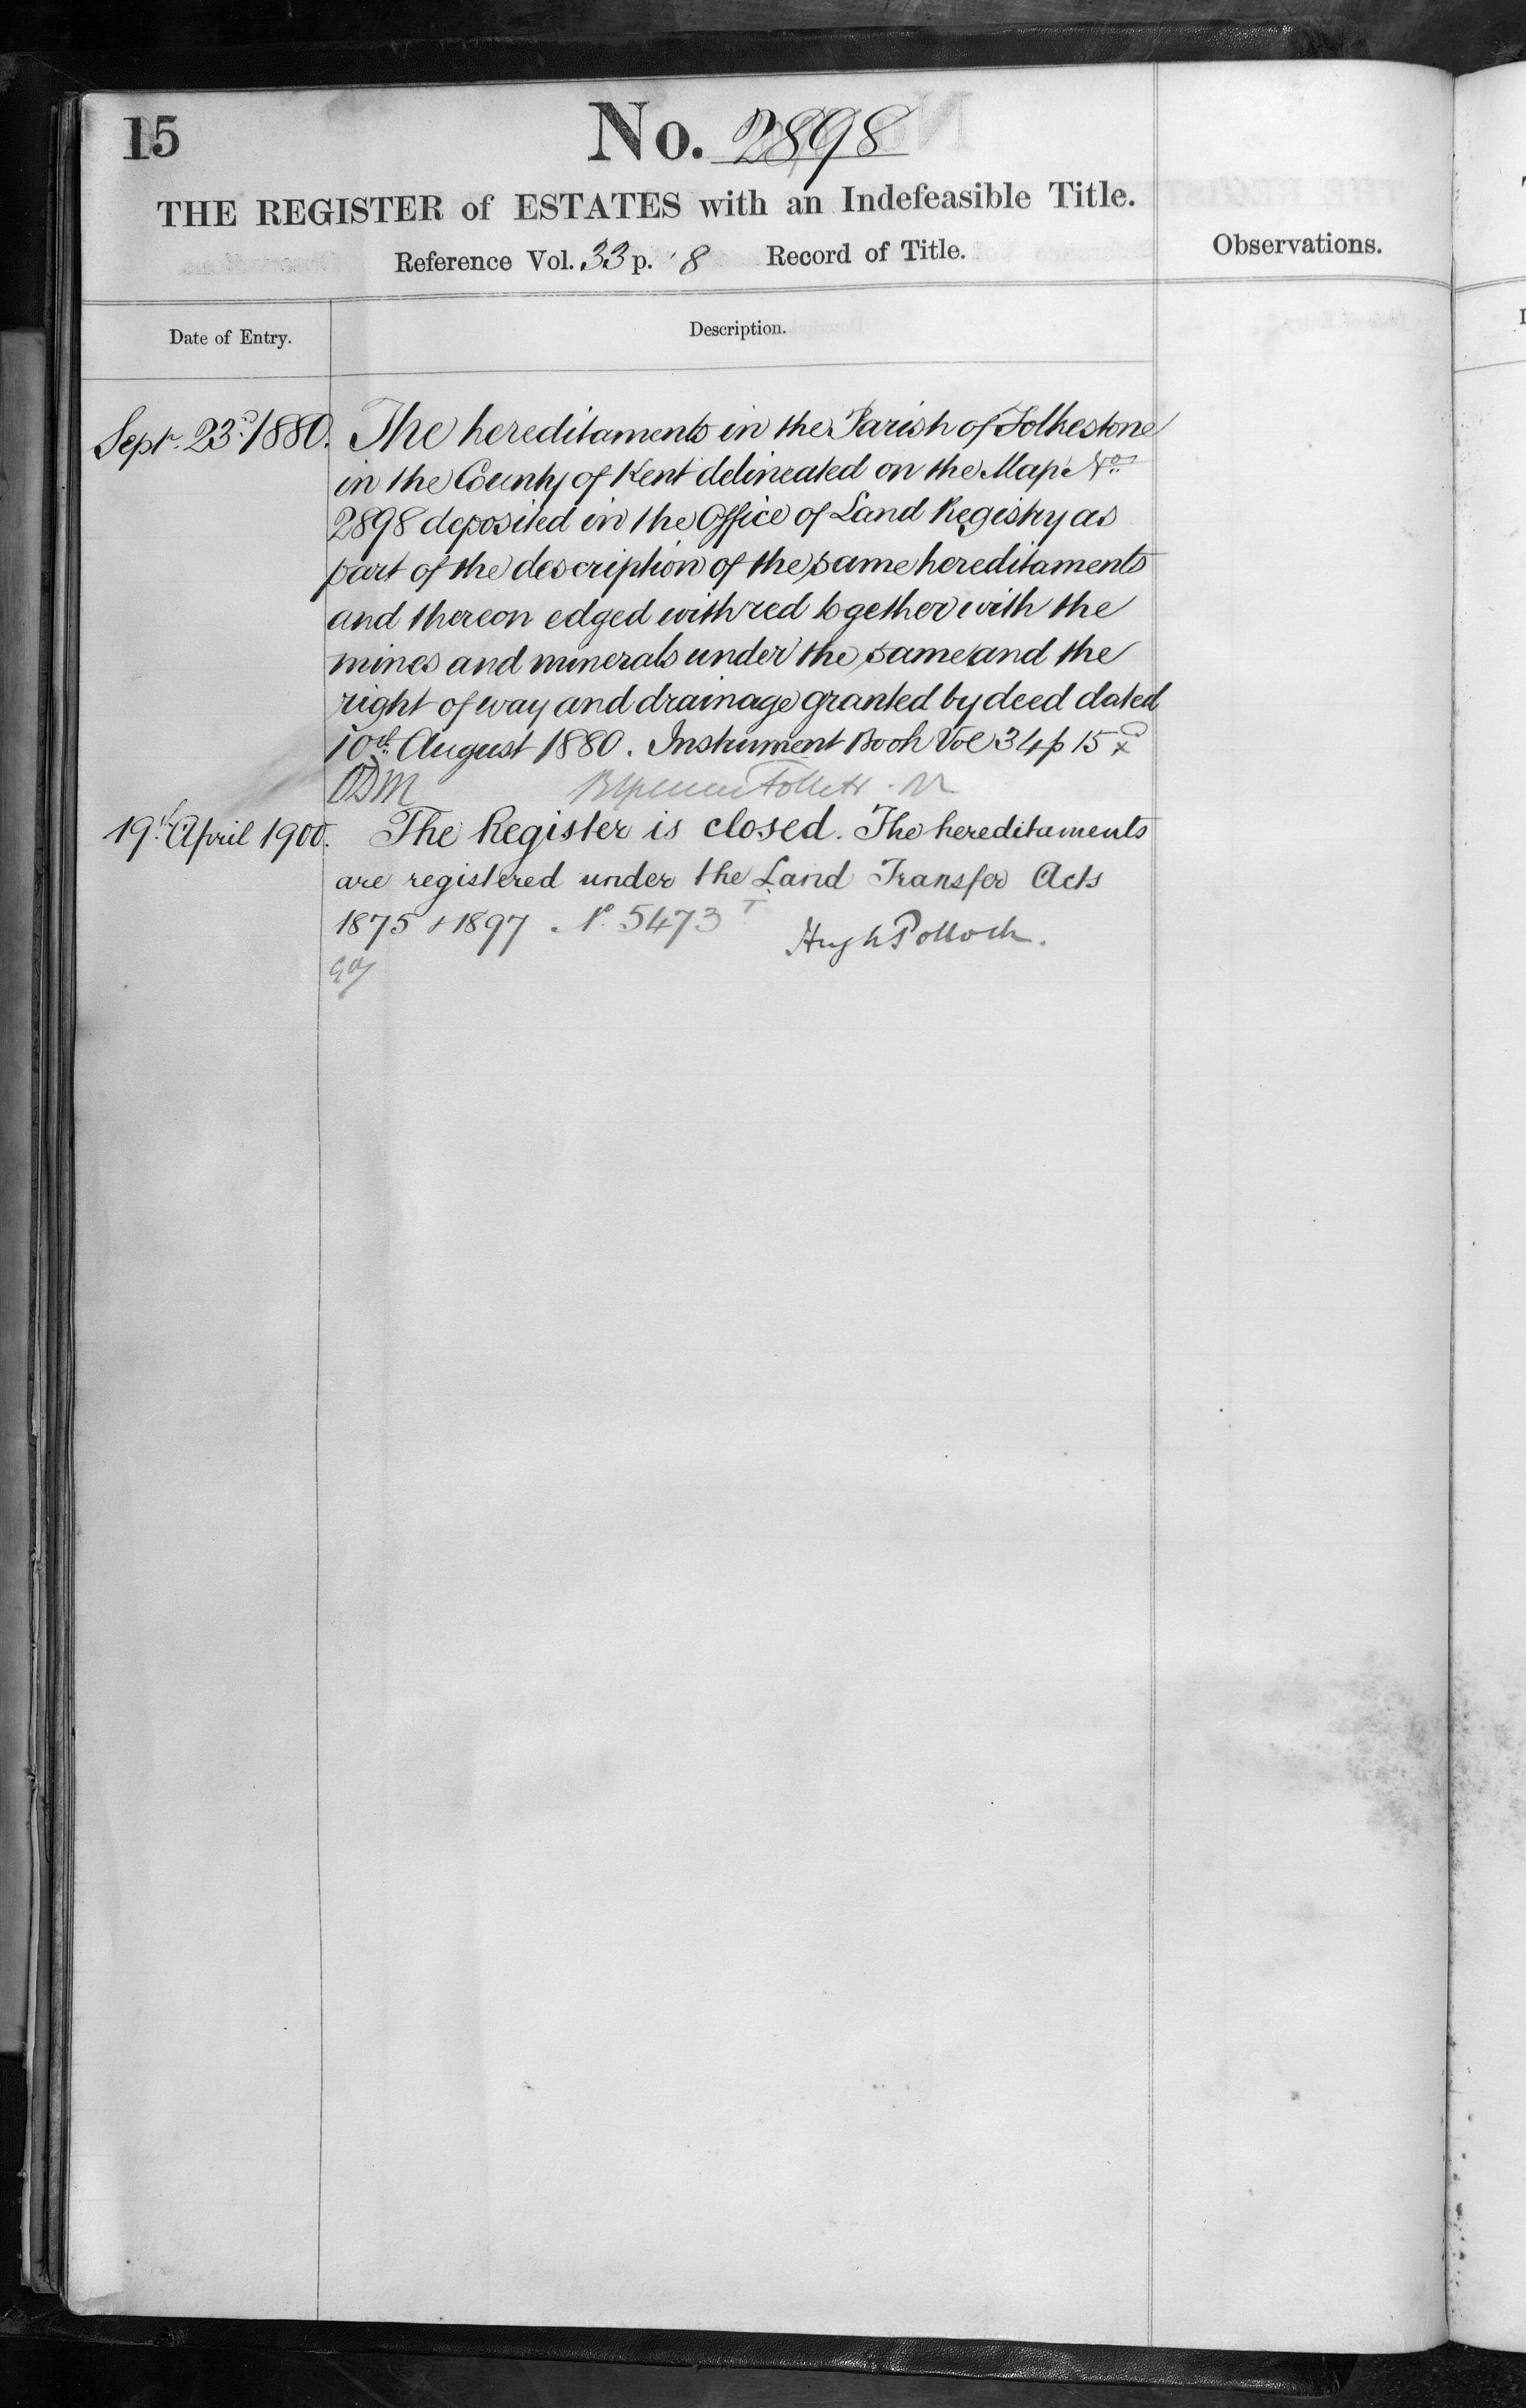 15
No. 2898
THE REGISTER of ESTATES with an Indefeasible Title.
Reference Vol. 33 p. 8 Record of Title.
Observations.
Date of Entry.
Description.
Sept. 23rd 1880. The hereditaments in the Parish of Folkestone
in the County of Kent delineated on the Map No.
2898 deposited in the Office of Land Registry as
part of the description of the same hereditaments
and thereon edged with red together with the
mines and minerals under the same and the
right of way and drainage granted by deed dated
10th August 1880. Instrument Book Vol 34 p 15
Follett
19th April 1900. The Register is closed. The hereditaments
are registered under the Land Transfer Acts
1875 & 1897. No. 5473
Hugh Pollock.